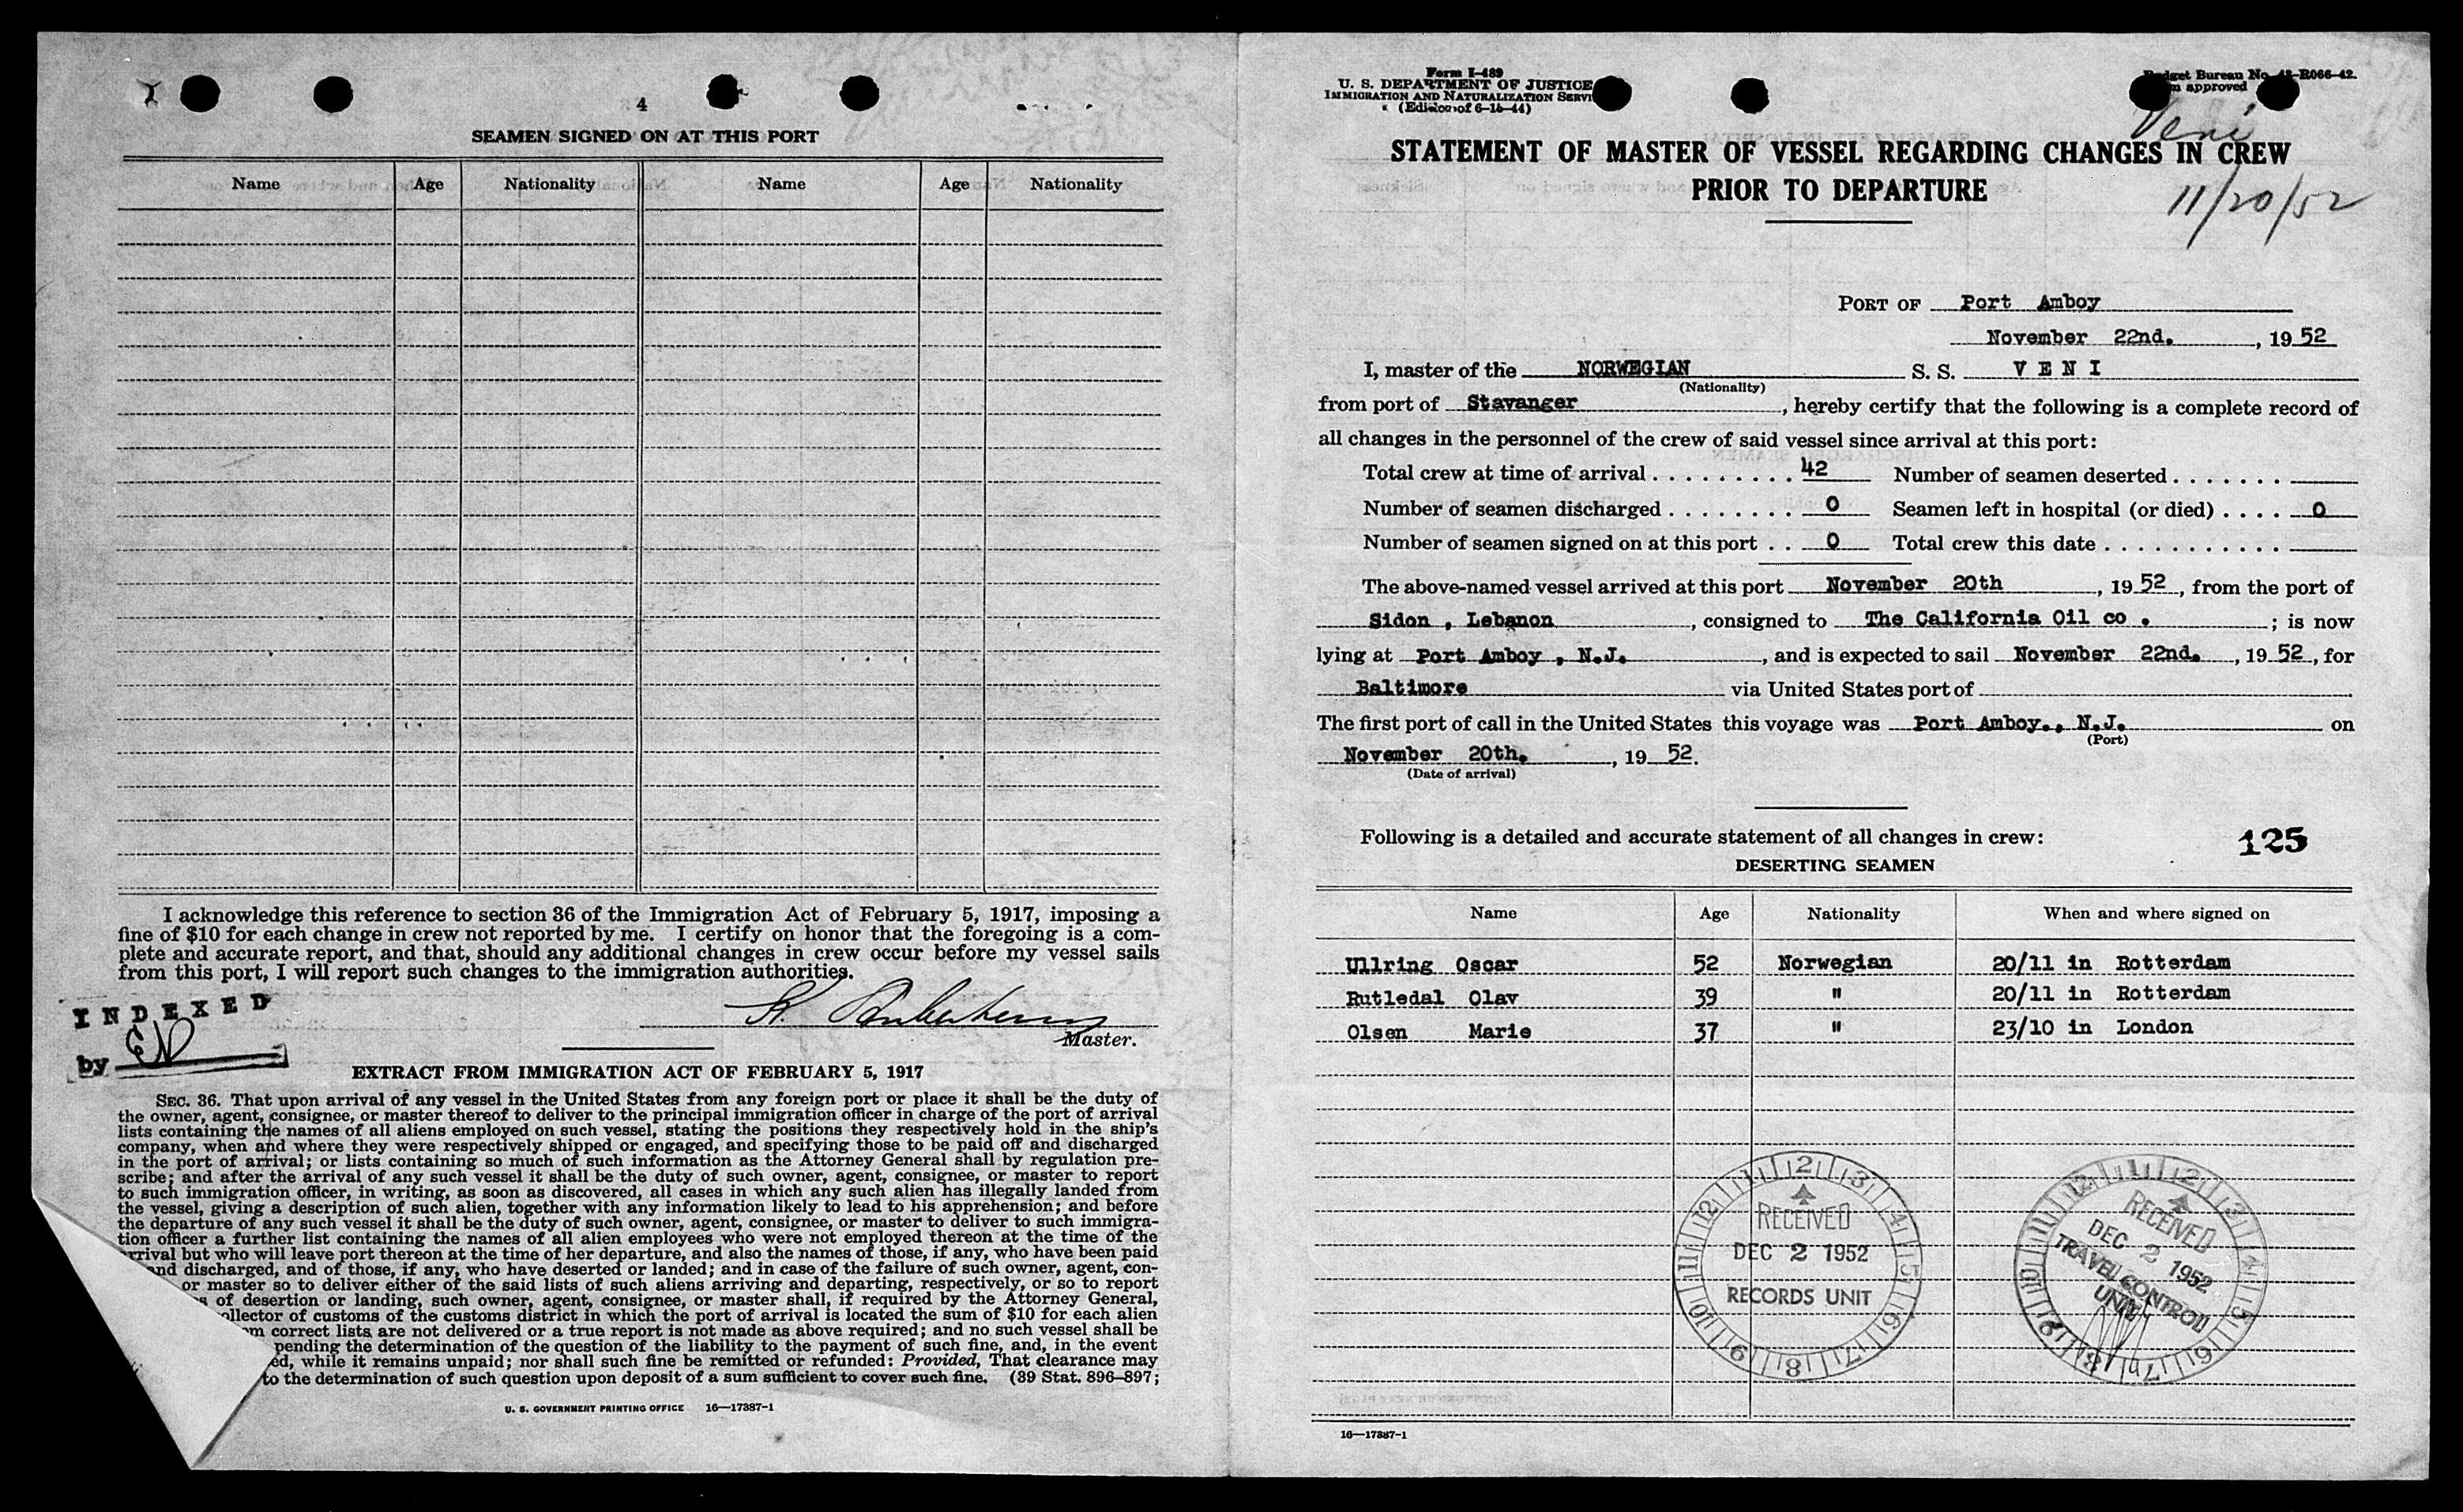 4
SEAMEN SIGNED ON AT THIS PORT
Name Age Nationality Name Age Nationality
I acknowledge this reference to section 36 of the Immigration Act of February 5, 1917, imposing a
fine of $10 for each change in crew not reported by me. I certify on honor that the foregoing is a com-
plete and accurate report, and that, should any additional changes in crew occur before my vessel sails
from this port, I will report such changes to the immigration authorities.
INDEXED
by
Master.
EXTRACT FROM IMMIGRATION ACT OF FEBRUARY 5, 1917
SEC. 36. That upon arrival of any vessel in the United States from any foreign port or place it shall be the duty of
the owner, agent, consignee, or master thereof to deliver to the principal immigration officer in charge of the port of arrival
lists containing the names of all aliens employed on such vessel, stating the positions they respectively hold in the ship's
company, when and where they were respectively shipped or engaged, and specifying those to be paid off and discharged
in the port of arrival; or lists containing so much of such information as the Attorney General shall by regulation pre-
scribe; and after the arrival of any such vessel it shall be the duty of such owner, agent, consignee, or master to report
to such immigration officer, in writing, as soon as discovered, all cases in which any such alien has illegally landed from
the vessel, giving a description of such alien, together with any information likely to lead to his apprehension; and before
the departure of any such vessel it shall be the duty of such owner, agent, consignee, or master to deliver to such immigra-
tion officer a further list containing the names of all alien employees who were not employed thereon at the time of the
rrival but who will leave port thereon at the time of her departure, and also the names of those, if any, who have been paid
and discharged, and of those, if any, who have deserted or landed; and in case of the failure of such owner, agent, con-
or master so to deliver either of the said lists of such aliens arriving and departing, respectively, or so to report
s of desertion or landing, such owner, agent, consignee, or master shall, if required by the Attorney General,
ollector of customs of the customs district in which the port of arrival is located the sum of $10 for each alien
m correct lists are not delivered or a true report is not made as above required; and no such vessel shall be
pending the determination of the question of the liability to the payment of such fine, and, in the event
ed, while it remains unpaid; nor shall such fine be remitted or refunded: Provided, That clearance may
to the determination of such question upon deposit of a sum sufficient to cover such fine. (39 Stat. 896–897;
U. S. GOVERNMENT PRINTING OFFICE 16—17387-1
Form I-489
U. S. DEPARTMENT OF JUSTICE
IMMIGRATION AND NATURALIZATION SERVI
(Edition of 6-15-44)
dget Bureau No. 43-R066-42.
m approved
Veni
STATEMENT OF MASTER OF VESSEL REGARDING CHANGES IN CREW
PRIOR TO DEPARTURE
11/20/52
PORT OF Port Amboy
November 22nd. , 19 52
I, master of the NORWEGIAN S. S. V E N I
(Nationality)
from port of Stavanger , hereby certify that the following is a complete record of
all changes in the personnel of the crew of said vessel since arrival at this port:
Total crew at time of arrival . . . . . . . . . 42 Number of seamen deserted . . . . . . .
Number of seamen discharged . . . . . . . . 0 Seamen left in hospital (or died) . . . . 0
Number of seamen signed on at this port . . 0 Total crew this date . . . . . . . . . . .
The above-named vessel arrived at this port November 20th , 19 52 , from the port of
Sidon , Lebanon , consigned to The California Oil co . ; is now
lying at Port Amboy , N.J. , and is expected to sail November 22nd. , 19 52 , for
Baltimore via United States port of
The first port of call in the United States this voyage was Port Amboy., N.J. on
(Port)
November 20th. , 19 52.
(Date of arrival)
Following is a detailed and accurate statement of all changes in crew: 125
DESERTING SEAMEN
Name Age Nationality When and where signed on
Ullring Oscar 52 Norwegian 20/11 in Rotterdam
Rutledal Olav 39 " 20/11 in Rotterdam
Olsen Marie 37 " 23/10 in London
12 1 2 3 4 5 6 7 8 9 10 11
RECEIVED
DEC 2 1952
RECORDS UNIT
12 1 2 3 4 5 6 7 8 9 10 11
RECEIVED
DEC 2 1952
TRAVEL CONTROL
UNIT
16—17387-1